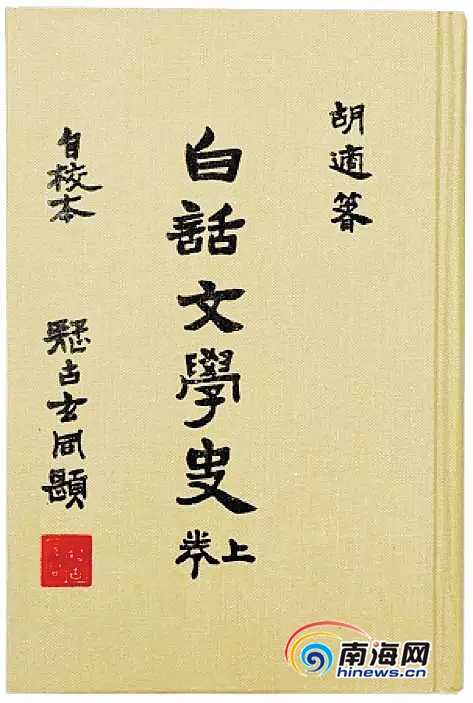 胡適箸
白話文學史
上卷
自校本
疑古玄同題
南海网
hinews.cn